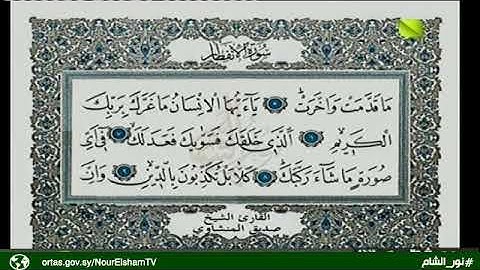 سورة الانفطار
مَا قَدَّمَتْ وَأَخَّرَتْ يَٰٓأَيُّهَا الْإِنسَانُ مَا غَرَّكَ بِرَبِّكَ
الْكَرِيمِ الَّذِي خَلَقَكَ فَسَوَّىٰكَ فَعَدَلَكَ فِي أَيِّ
صُورَةٍ مَا شَاءَ رَكَّبَكَ كَلَّا بَلْ تُكَذِّبُونَ بِالدِّينِ وَإِنَّ
القارئ الشيخ
صديق المنشاوي
ortas.gov.sy/NourElshamTV
#نور_الشام